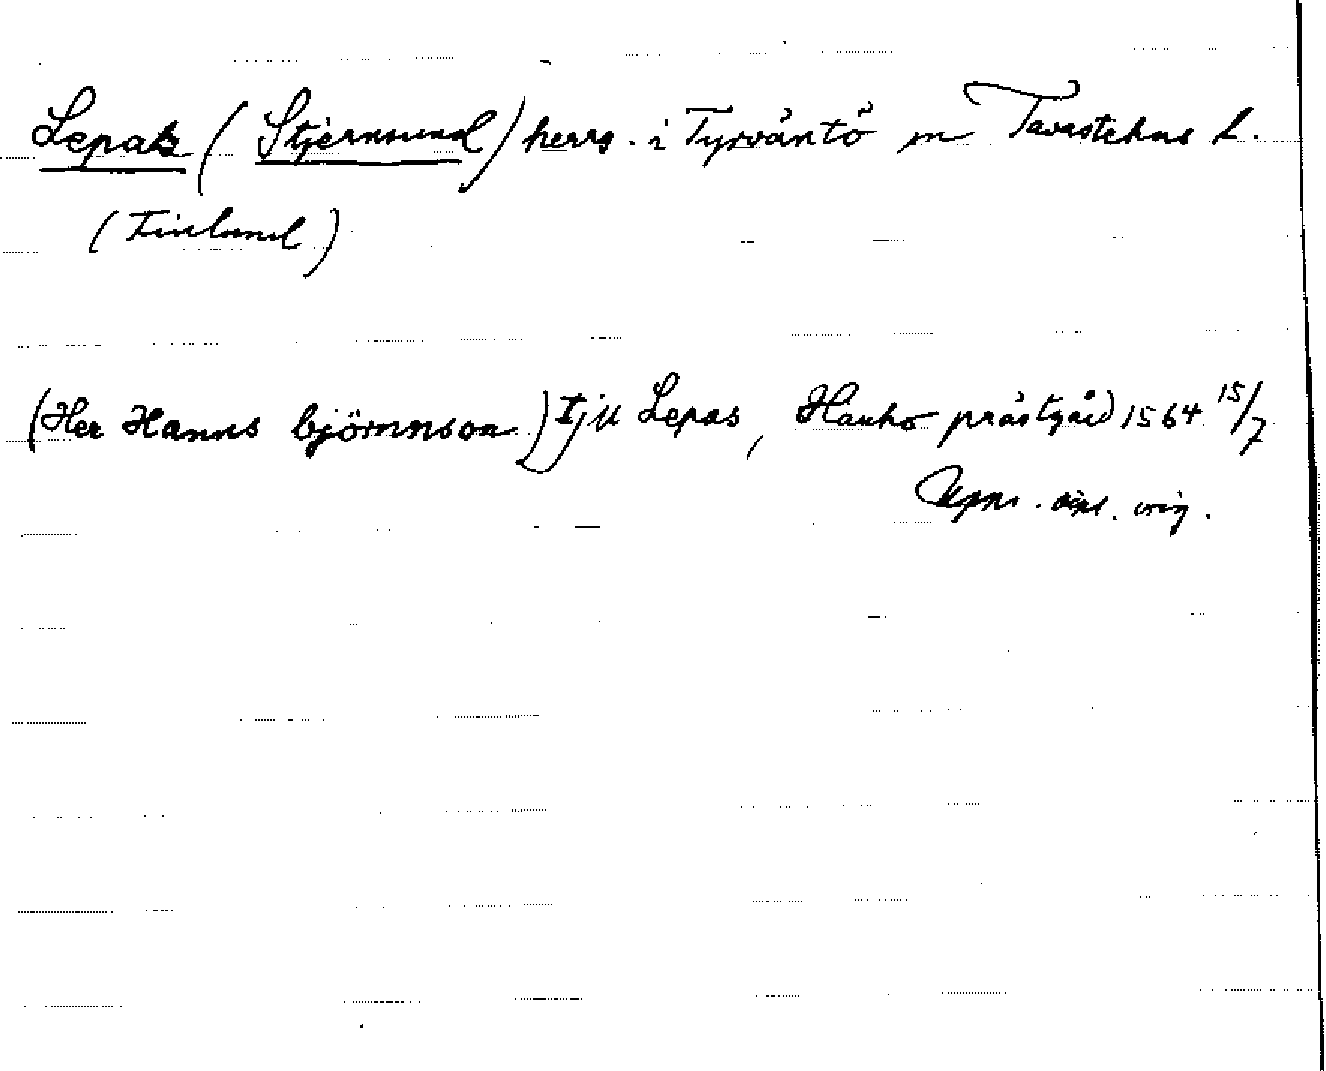 Lepas (Stjernsund) herrg. i Tyrväntö sn Tavastehus l.
(Finland)
(Her Hanns björnnson) tjll Lepas, Hauho prästgård 1564 15/7
Upps. dipl. orig.